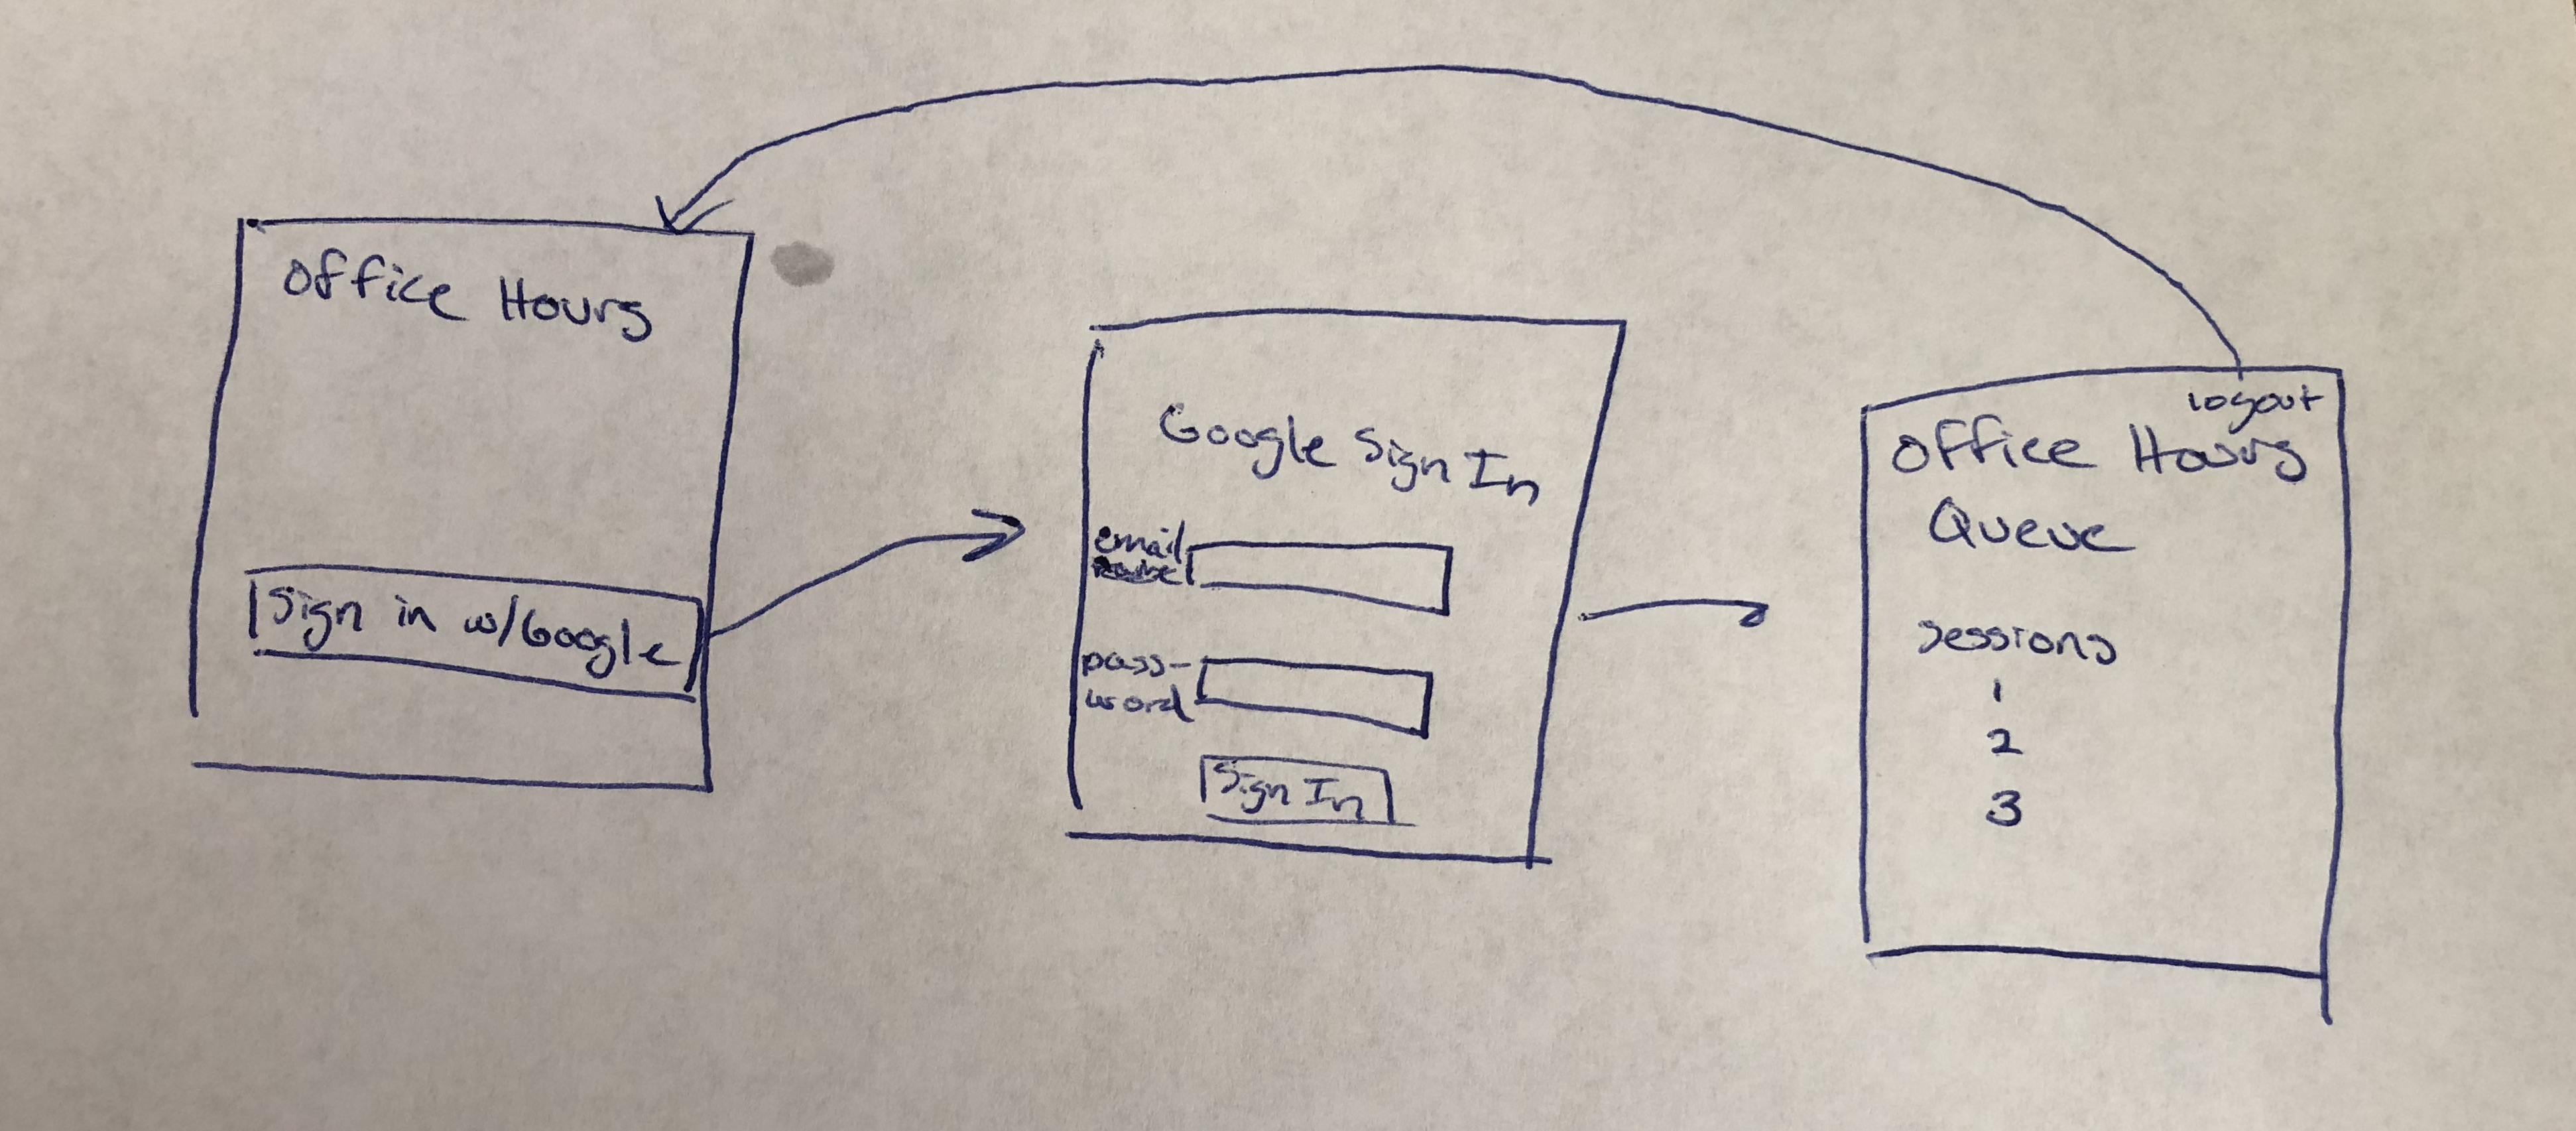 Office Hours
Sign in w/Google
Google Sign In
email
pass-
word
Sign In
logout
Office Hours
Queue
sessions
1
2
3